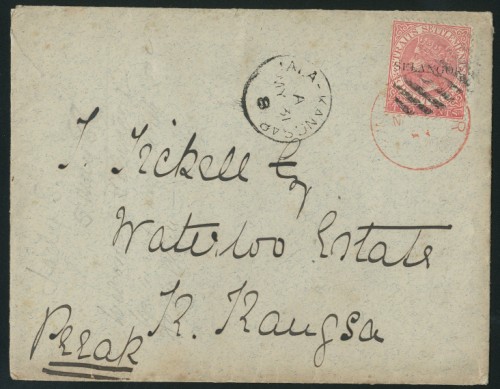 STRAITS SETTLEMENTS
SELANGOR
KANGSAR
A
MY 31
8
T. Tickell Esq
Waterloo Estate
K. Kangsa
Perak